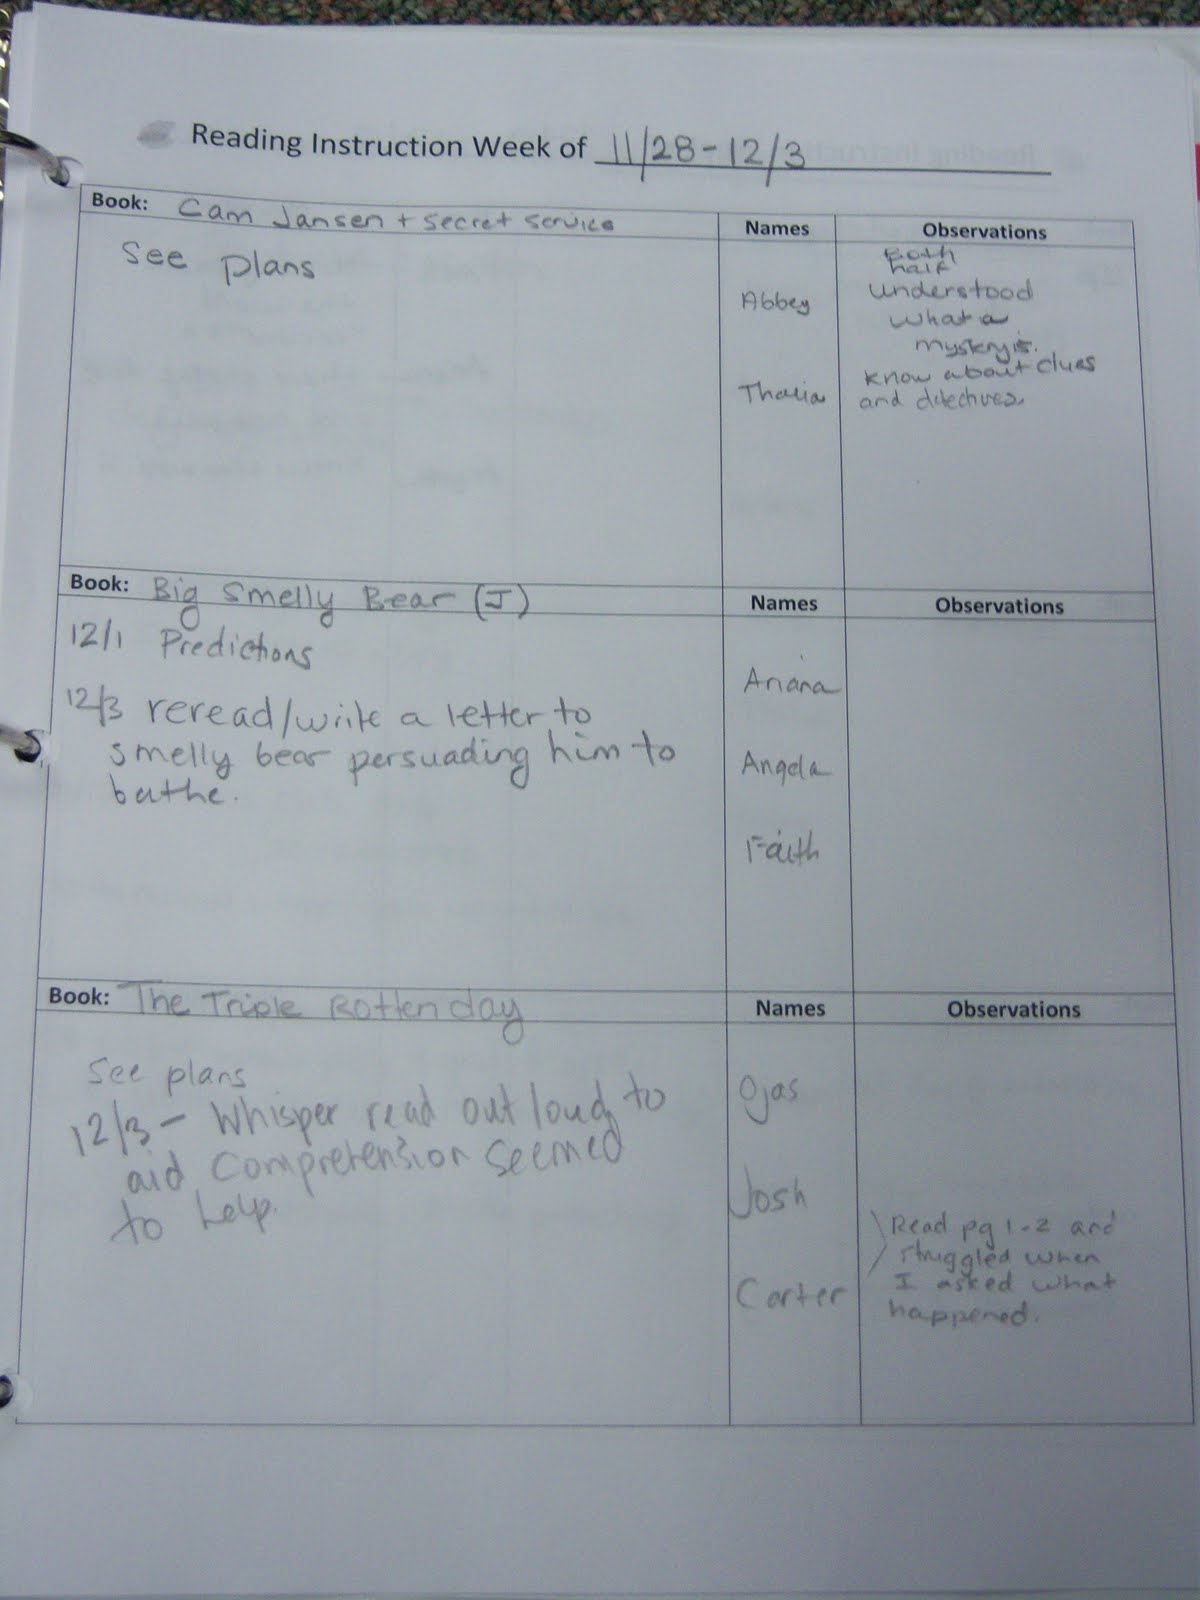 Reading Instruction Week of 11/28-12/3
Book: Cam Jansen + Secret Service
Names
Observations
See plans
Abbey
Thalia
Both
half
understood
what a
mystery is.
know about clues
and
Book: Big Smelly Bear (J)
Names
Observations
12/1 Predictions
12/3 reread/write a letter to
smelly bear persuading him to
bathe.
Ariana
Angela
Faith
Book: The Triple Rotten day
Names
Observations
See plans
12/3 - Whisper read out loud to
aid comprehension seemed
to help.
Ojas
Josh
Carter
Read pg 1-2 and
struggled when
I asked what
happened.